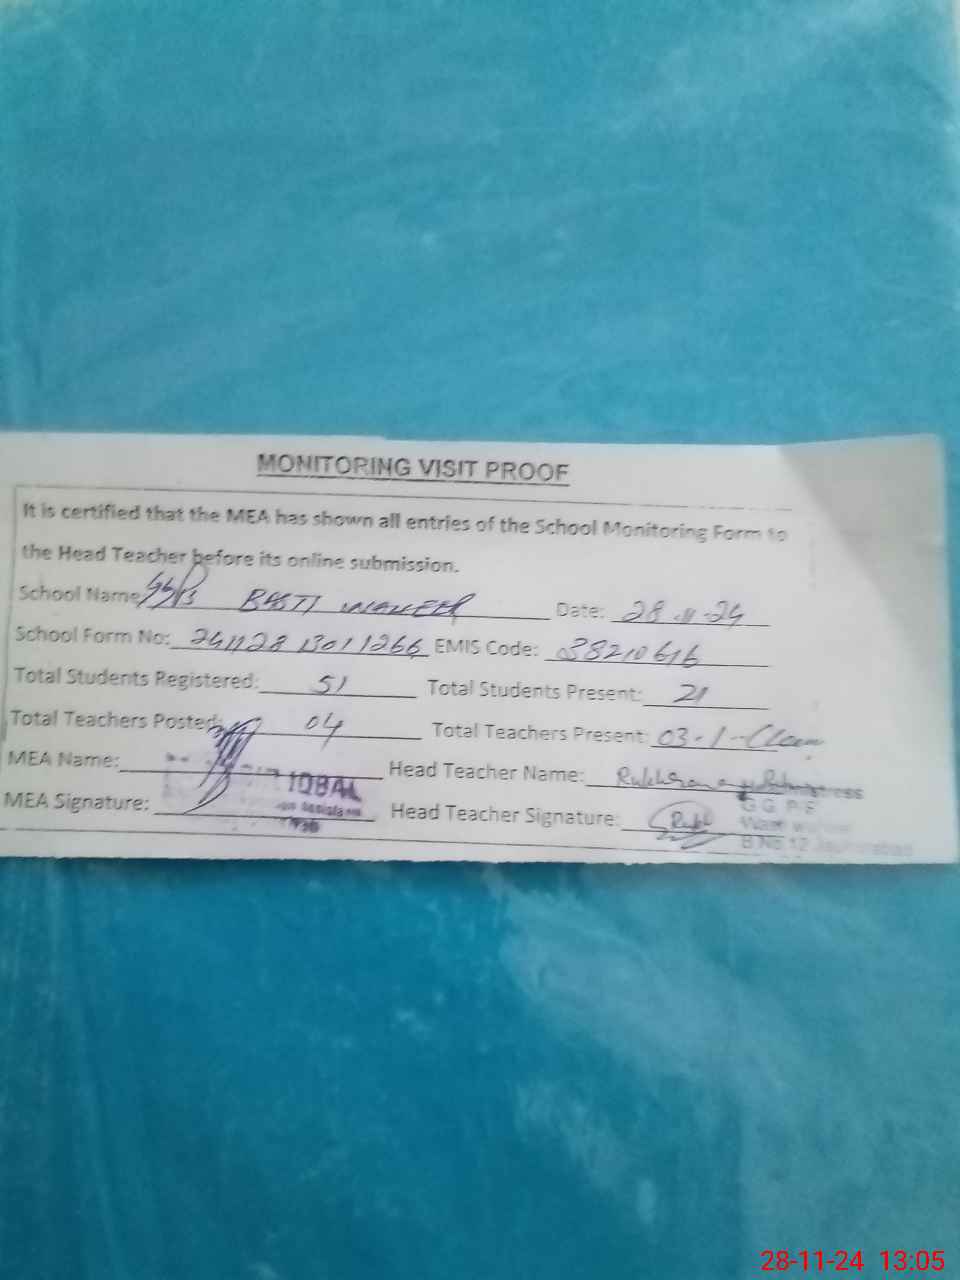 MONITORING VISIT PROOF
It is certified that the MEA has shown all entries of the School Monitoring Form to
the Head Teacher before its online submission.
School Name: BASTI Date: 28-11-24
School Form No: 241128 13011266 EMIS Code: 38210616
Total Students Registered: 51 Total Students Present: 21
Total Teachers Posted: 04 Total Teachers Present: 03-1-
MEA Name: IQBAL Head Teacher Name:
MEA Signature: Head Teacher Signature:
G G P S
28-11-24 13:05